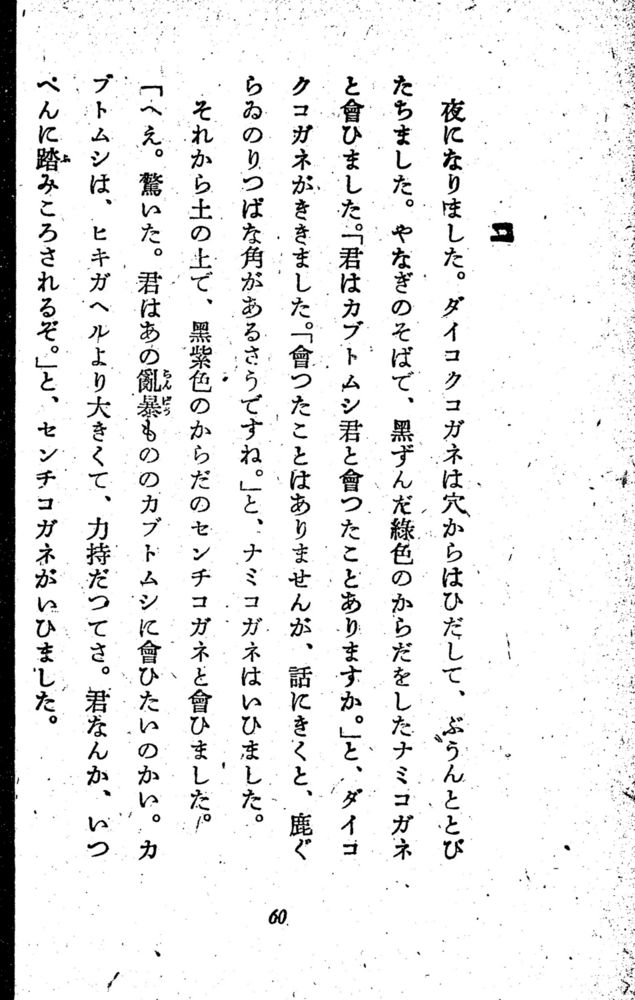 コ
夜になりました。ダイコクコガネは穴からはひだして、ぶうんととび
たちました。やなぎのそばで、黑ずんだ綠色のからだをしたナミコガネ
と會ひました。「君はカブトムシ君と會つたことありますか。」と、ダイコ
クコガネがききました。「會つたことはありませんが、話にきくと、鹿ぐ
らゐのりつぱな角があるさうですね。」と、ナミコガネはいひました。
それから土の上で、黑紫色のからだのセンチコガネと會ひました。
「へえ。驚いた。君はあの亂暴もののカブトムシに會ひたいのかい。カ
ブトムシは、ヒキガヘルより大きくて、力持だつてさ。君なんか、いつ
ぺんに踏みころされるぞ。」と、センチコガネがいひました。
60